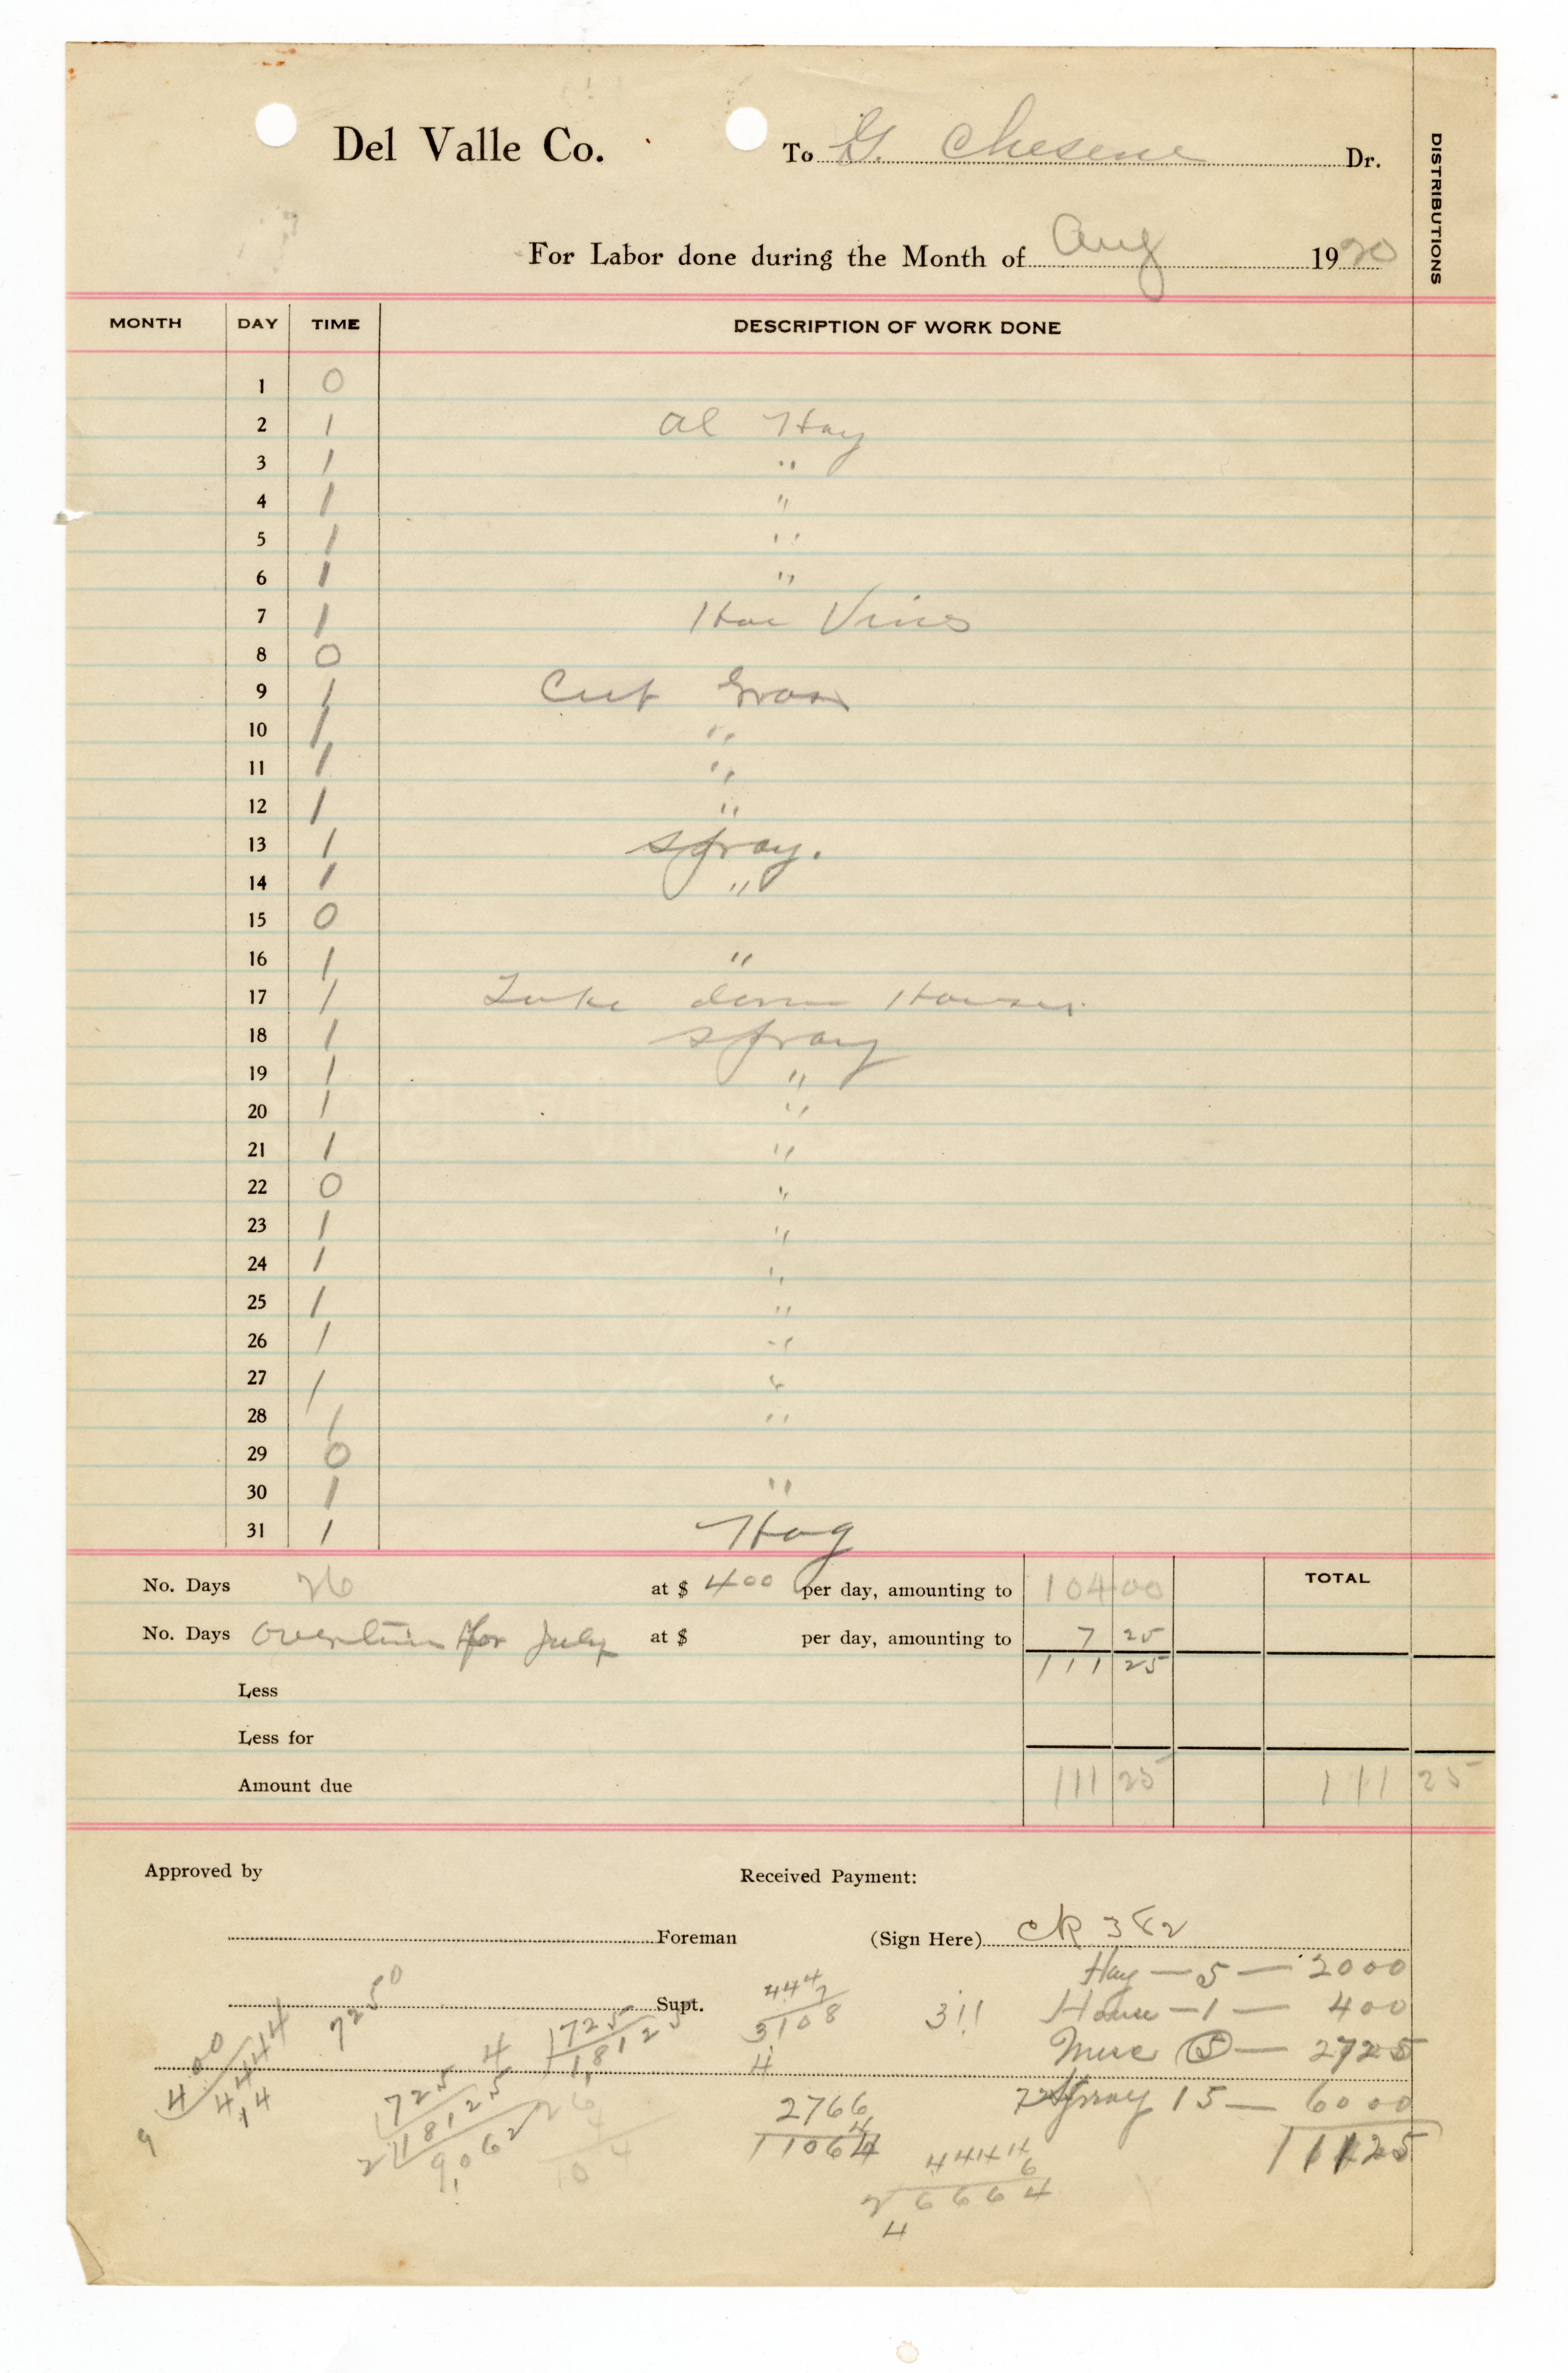 Del Valle Co. To G. Chesene Dr.
DISTRIBUTIONS
For Labor done during the Month of Aug 1920
MONTH DAY TIME DESCRIPTION OF WORK DONE
1 0
2 1 al Hay
3 1 "
4 1 "
5 1 "
6 1 "
7 1 Hoe Vines
8 0
9 1 Cut Grass
10 1 "
11 1 "
12 1 "
13 1 spray.
14 1 "
15 0
16 1 "
17 1 down House
18 1 spray
19 1 "
20 1 "
21 1 "
22 0 "
23 1 "
24 1 "
25 1 "
26 1 "
27 1 "
28 1 "
29 0
30 1 "
31 1 Hog
No. Days 26 at $ 4 00 per day, amounting to 104 00 TOTAL
No. Days Overtime for July at $ per day, amounting to 7 25
111 25
Less
Less for
Amount due 111 25 111 25
Approved by Received Payment:
Foreman (Sign Here) CK 382
Hay — 5 — 2000
Supt.
House — 1 — 400
Misc (5) — 2725
Spray 15 — 6000
11125
7250
400
4444
14
9
725
4
18125
2
9062
1725
18125
26
4
104
444
7
3108
4
311
2766
4
11064
4444
6
26664
4